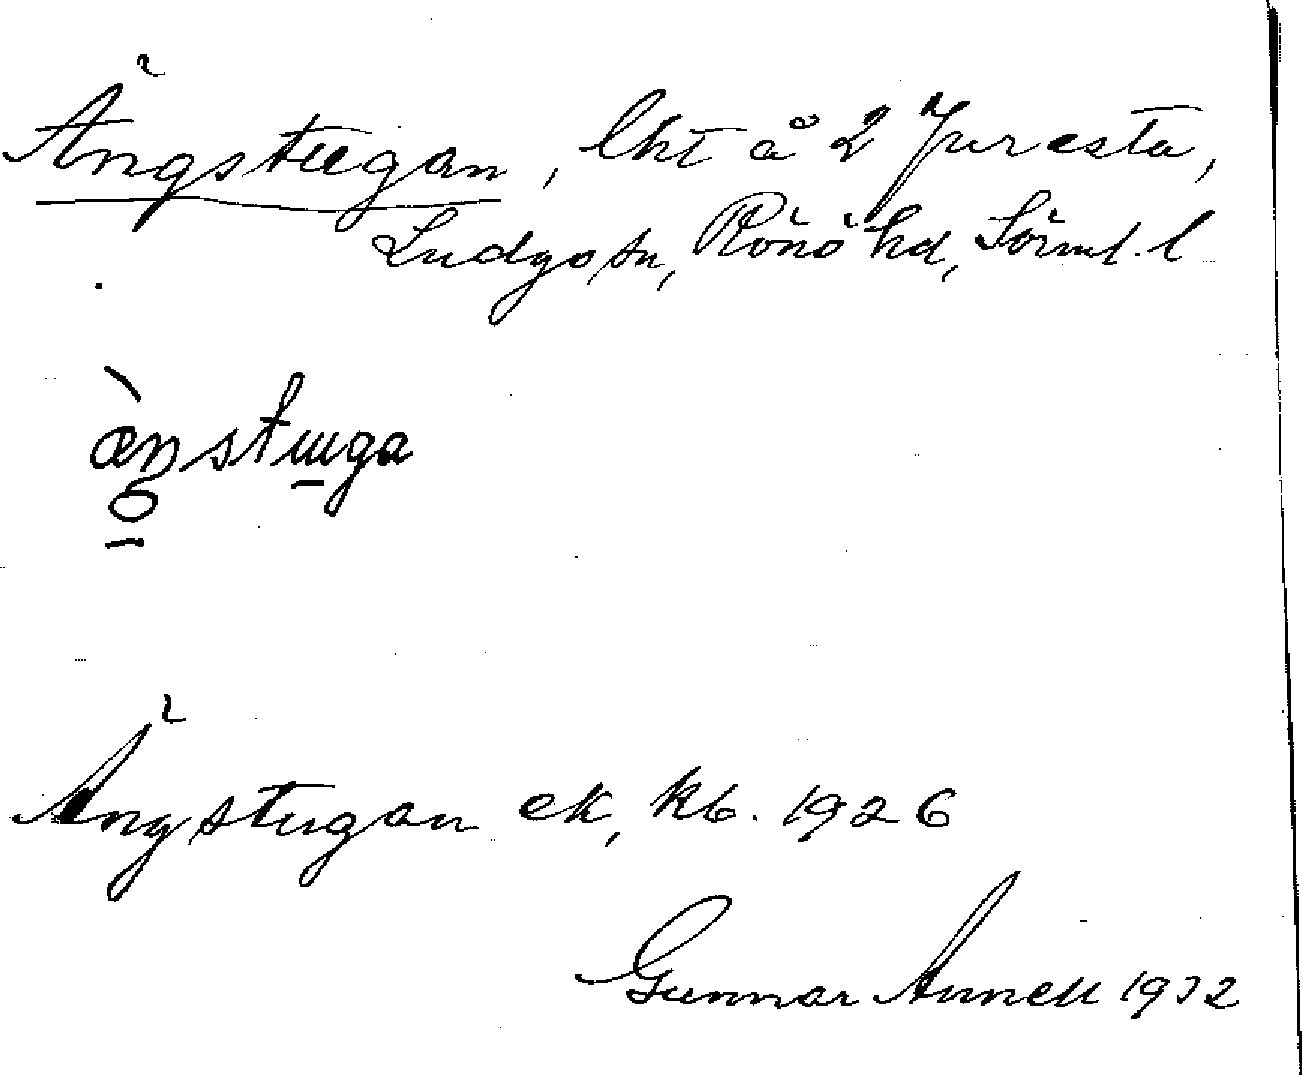 Ängstugan, lht å 2 Juresta,
Ludgo sn, Rönö hd, Sörml. l
æŋstuga
Ängstugan ek, kb. 1926
Gunnar Annell 1932